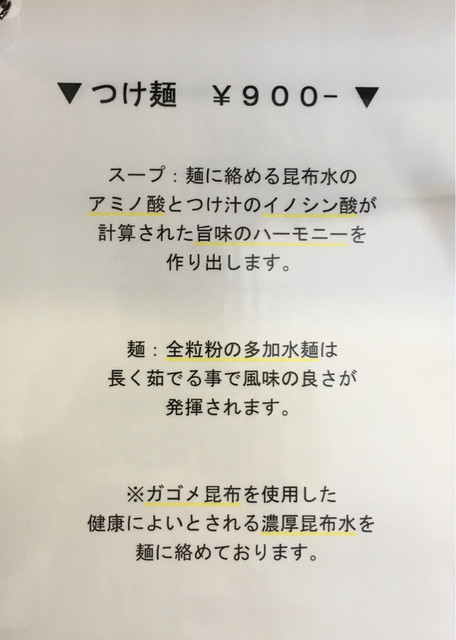 ▼つけ麺 ￥９００−▼
スープ：麺に絡める昆布水の
アミノ酸とつけ汁のイノシン酸が
計算された旨味のハーモニーを
作り出します。
麺：全粒粉の多加水麺は
長く茹でる事で風味の良さが
発揮されます。
※ガゴメ昆布を使用した
健康によいとされる濃厚昆布水を
麺に絡めております。